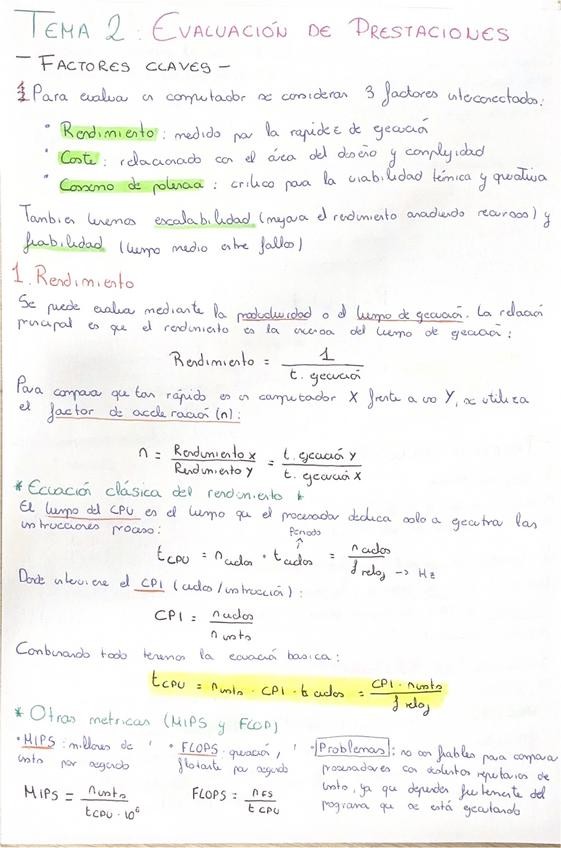 TEMA 2 : EVALUACIÓN DE PRESTACIONES
- FACTORES CLAVES -
Para evaluar un computador se consideran 3 factores interconectados:
• Rendimiento : medido por la rapidez de ejecución
• Coste : relacionado con el área del diseño y complejidad
• Consumo de potencia : crítico para la viabilidad térmica y operativa
Tambien tenemos escalabilidad (mejora el rendimiento anadiendo recursos) y
fiabilidad (tiempo medio entre fallos)
1. Rendimiento
Se puede evaluar mediante la productividad o el tiempo de ejecución. La relación
principal es que el rendimiento es la inversa del tiempo de ejecución :
Rendimiento = 1 / t. ejecución
Para comparar que tan rápido es un computador X frente a uno Y, se utiliza
el factor de acceleración (n) :
n = Rendimiento X / Rendimiento Y = t. ejecución Y / t. ejecución X
* Ecuación clásica del rendimiento *
El tiempo del CPU es el tiempo que el procesador dedica solo a ejecutar las
instrucciones proceso :
Periodo
↑
t CPU = n ciclos · t ciclos = n ciclos / f reloj → Hz
Donde interviene el CPI (ciclos / instrucción) :
CPI = n ciclos / n insts
Combinando todo tenemos la ecuación basica :
t CPU = n insts · CPI · t ciclos = CPI · n insts / f reloj
* Otras metricas (MIPS y FLOP)
• MIPS : millones de
insts por segundo
MIPS = n insts / t CPU · 10⁶
• FLOPS : operación,
flotante por segundo
FLOPS = n FS / t CPU
Problemas : no son fiables para comparar
procesadores con distintos repertorios de
insts, ya que dependen fuertemente del
programa que se está ejecutando